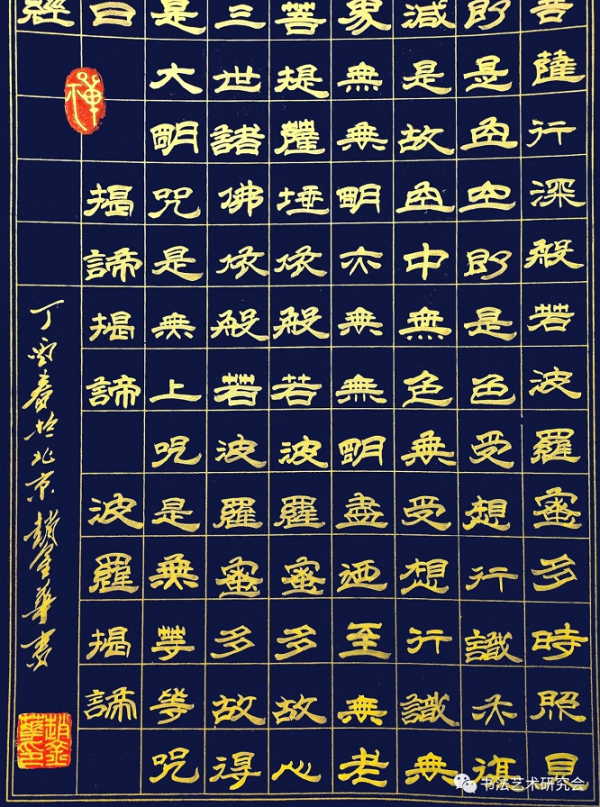 菩薩行深般若波羅蜜多時照見
即是色空即是色受想行識亦復
減是故空中無色無受想行識無
界無無明亦無無明盡迺至無老
菩提薩埵依般若波羅蜜多故心
三世諸佛依般若波羅蜜多故得
是大明咒是無上咒是無等等咒
曰 揭諦揭諦 波羅揭諦
經
禪
丁酉春於北京趙金華書
趙金華印
书法艺术研究会